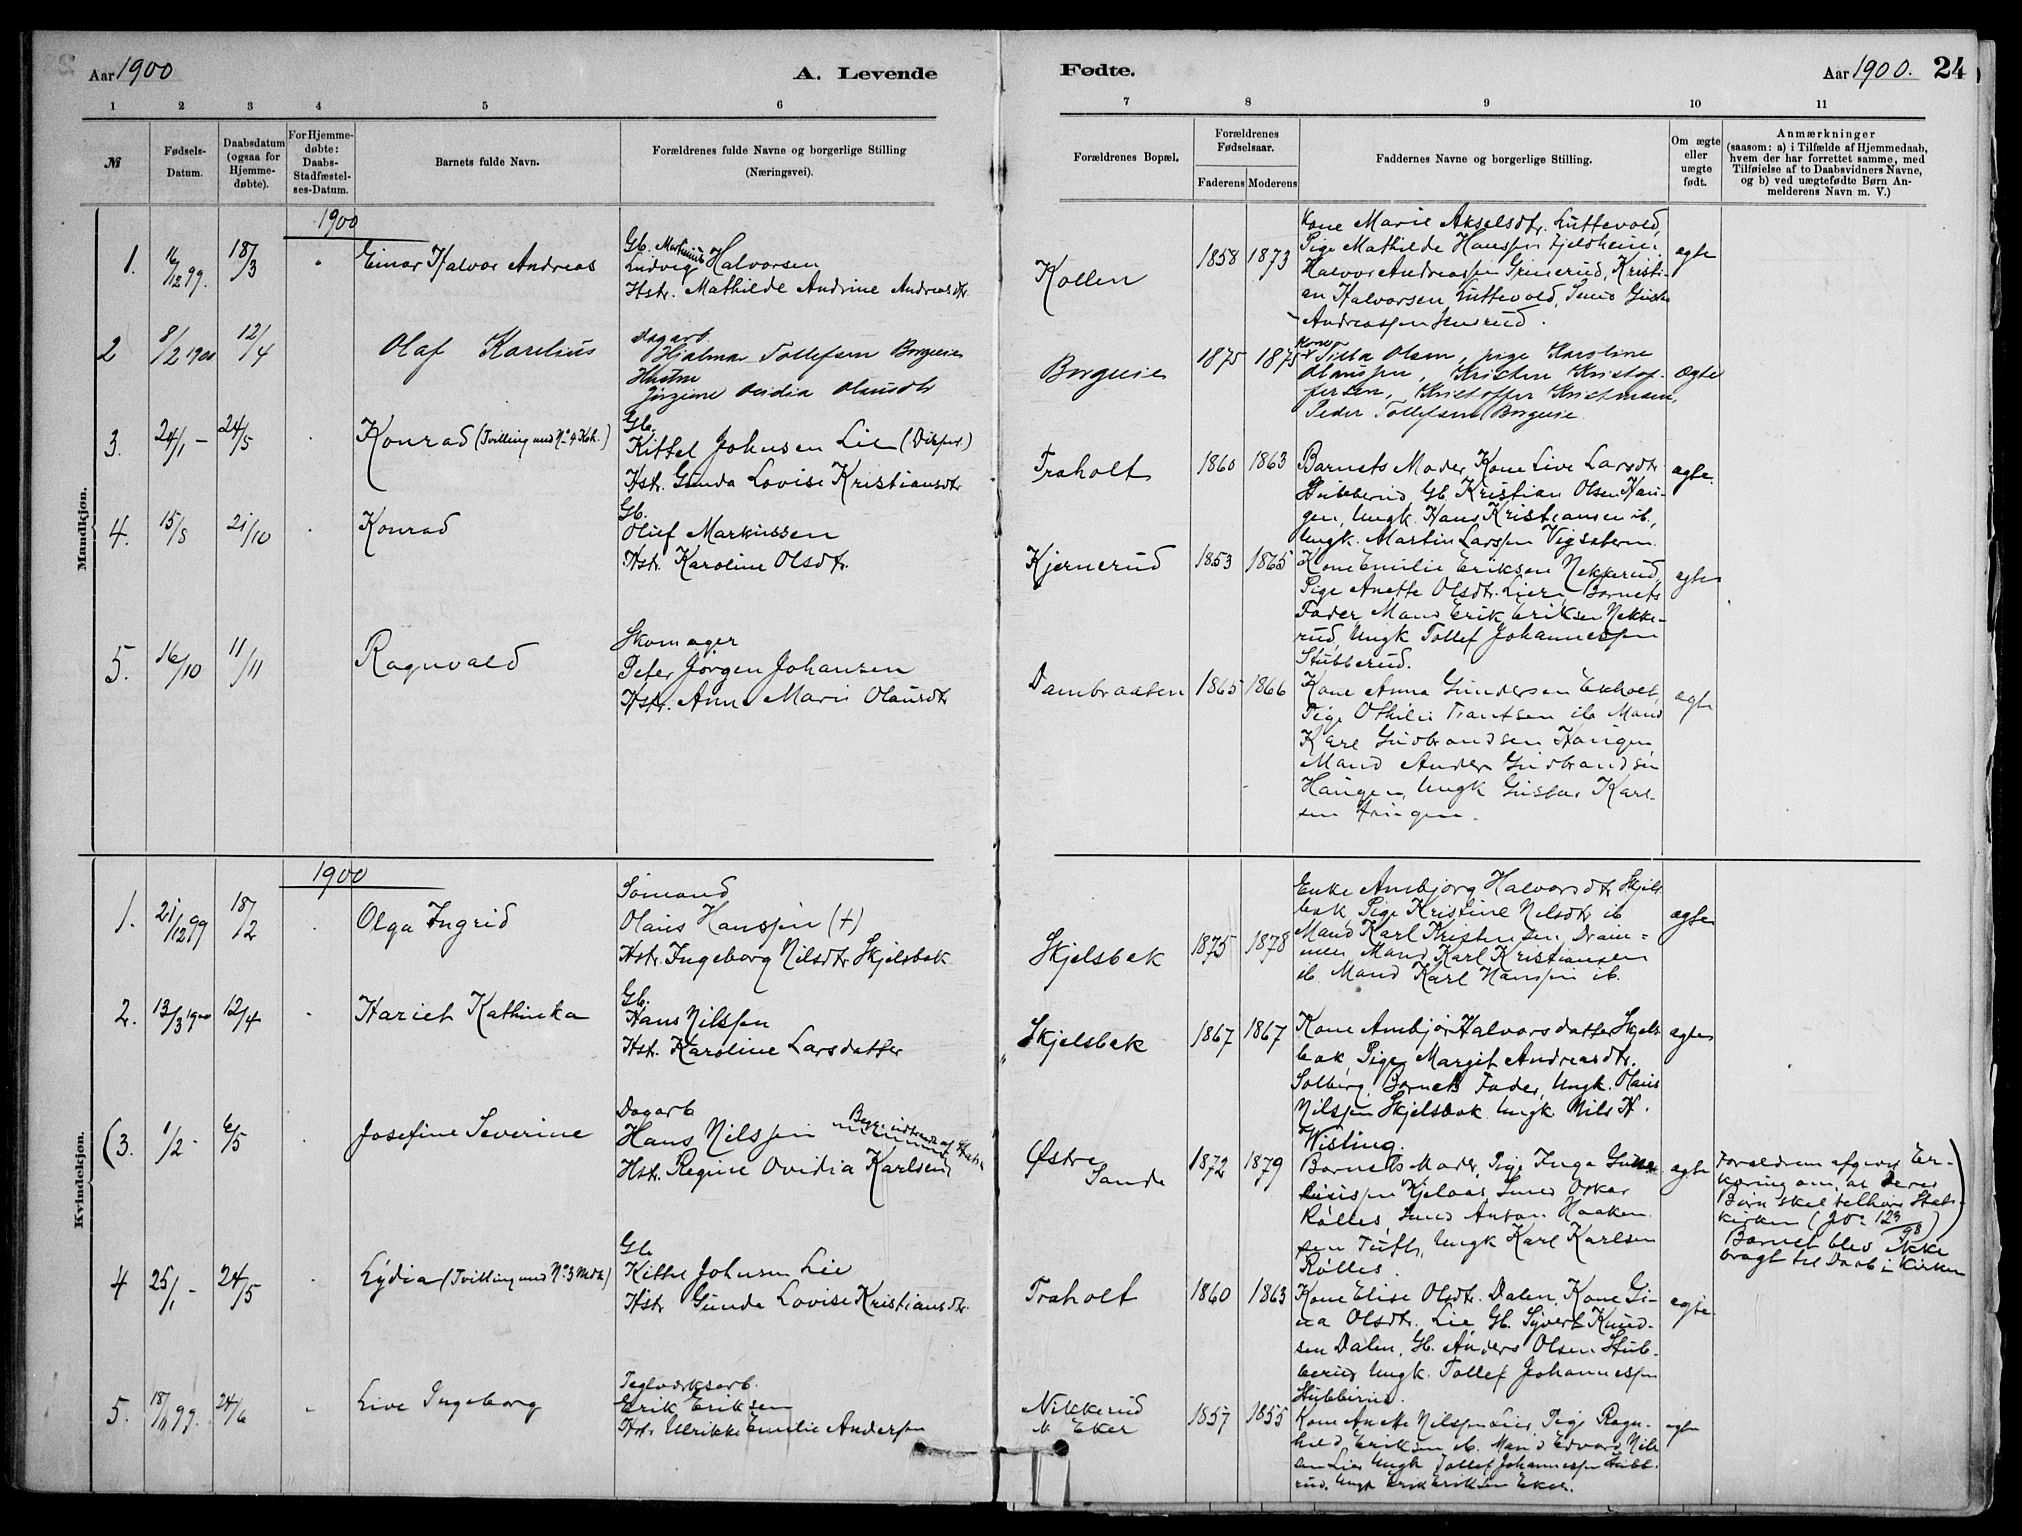 Aar 1900
A. Levende
Fødte.
Aar 1900.
24
1 2 3 4 5 6 7 8 9 10 11
№
Fødsels-
Datum.
Daabsdatum
(ogsaa for
Hjemme-
døbte).
For Hjemme-
døbte:
Daabs-
Stadfæstel-
ses-Datum.
Barnets fulde Navn.
Forældrenes fulde Navne og borgerlige Stilling
(Næringsvei).
Forældrenes Bopæl.
Forældrenes
Fødselsaar.
Faderens
Moderens
Faddernes Navne og borgerlige Stilling.
Om ægte
eller
uægte
født.
Anmærkninger
(saasom: a) i Tilfælde af Hjemmedaab,
hvem der har forrettet samme, med
Tilføielse af to Daabsvidners Navne,
og b) ved uægtefødte Børn An-
melderens Navn m. V.)
Mandkjøn.
1900
1. 16/12 99. 18/3
Einar Halvor Andreas
Gb. Martinius
Ludvig Halvorsen
Hstr. Mathilde Andrine Andreasdtr.
Kollen
1858 1873
Kone Marie Akselsdtr. Luttevold,
Pige Mathilde Hanssen Fjeldheim,
Halvor Andreassen Grinerud, Kristi-
an Halvorsen Luttevold,
Andreassen
ægte
2 8/2 1900 12/4
Olaf Karelius
Dagarb.
Hjalmar Tollefsen Borgueie
Hustru
Jørgine Ovidia Olausdtr
Borgueie
1875 1875
Kone
Olsen, pige Karoline
Olaussen, Kristen Kristof-
fersen, Kristoffer Kristensen,
Peder Tollefsen Borgueie.
Ægte
3. 24/1 - 24/5
Konrad (Tvilling med No 4 Kvk.)
Gb.
Kittel Johnsen Lie (Disper.)
Hstr. Gunda Lovise Kristiansdtr
Traholt
1860 1863
Barnets Moder, Kone Live Larsdtr
Stubberud, Gb. Kristian Olsen Hau-
gen, Ungk. Hans Kristiansen ib.,
Ungk. Martin Larssen
ægte.
4. 15/8 21/10
Konrad
Gb.
Oluf Markussen
Hstr. Karoline Olsdtr.
Kjernerud
1853 1865
Kone Emilie Eriksen Nekkerud,
Pige Anette Olsdtr. Lier, Barnets
Fader, Mand Erik Eriksen Nekke-
rud, Ungk Tollef Johannessen
Stubberud.
ægte
5. 16/10 11/11
Ragnvald
Skomager
Peter Jørgen Johansen
Hstr. Anne Marie Olausdtr
Dambraaten
1865 1866
Kone Anna Gundersen Ekholt,
Pige Othilie Frantsen ib. Mand
Karl Gudbrandsen Haugen,
Mand Anders Gudbrandsen
Haugen, Ungk Gustav Karl-
sen Haugen.
ægte
Kvindekjøn.
1900
1. 21/12 99 18/2
Olga Ingrid
Sømand
Olaus Hanssen (+)
Hstr. Ingeborg Nilsdtr Skjelsbæk
Skjelsbæk
1875 1878
Enke Anbjørg Halvorsdtr Skjels-
bæk, Pige Kristine Nilsdtr ib
Mand Karl Kristensen Dram-
men, Mand Karl Kristiansen
ib. Mand Karl Hanssen ib.
ægte
2. 13/3 1900 12/4
Hariet Kathinka
Gb.
Hans Nilssen
Hstr. Karoline Larsdatter
Skjelsbæk
1867 1867
Kone Anbjør Halvorsdatter Skjels-
bæk, Pige Margit Andreasdtr.
Solberg, Barnets Fader, Ungk. Olaus
Nilssen Skjelsbæk, Ungk. Nils H.
Wisting.
ægte
(3. 1/2 - 6/5
Josefine Severine
Dagarb
Hans Nilssen
Hstr. Regine Ovidia Karlsen
Østre
Sande
1872 1879
Barnets Moder, Pige Inga
Oskar
Rølles, Anton Haaken-
sen Tufte, Ungk Karl Karlsen
Rølles.
ægte
Forældrene afgives Er-
klæring om, at deres
Børn skal tilhøre Stats-
kirken (Jo. 123/98)
Barnet blev ikke
bragt til Daab i Kirken
4 25/1 - 24/5
Lydia (Tvilling med No 3 Mdk)
Gb
Kittel Johnsen Lie
Hstr Gunda Lovise Kristiansdtr.
Traholt
1860 1863
Kone Elise Olsdtr. Dalen, Kone Gi-
na Olsdtr. Lie, Gb. Syvert Knud-
sen Dalen, Gb. Anders Olsen Stub-
berud, Ungk. Tollef Johannessen
Stubberud.
ægte.
5. 18/11 99. 24/6
Live Ingeborg
Teglværksarb.
Erik Eriksen
Hst. Ulrikke Emilie Anderssen
Nikkerud
N. Eker
1857 1855
Kone Anette Nilssen Lier, Pige Ragn-
hild Eriksen ib. Mand Edvard Nils-
sen Lier, Ungk Tollef Johannessen Stubb-
rud, Ungk Erik Eriksen Eker.
ægte